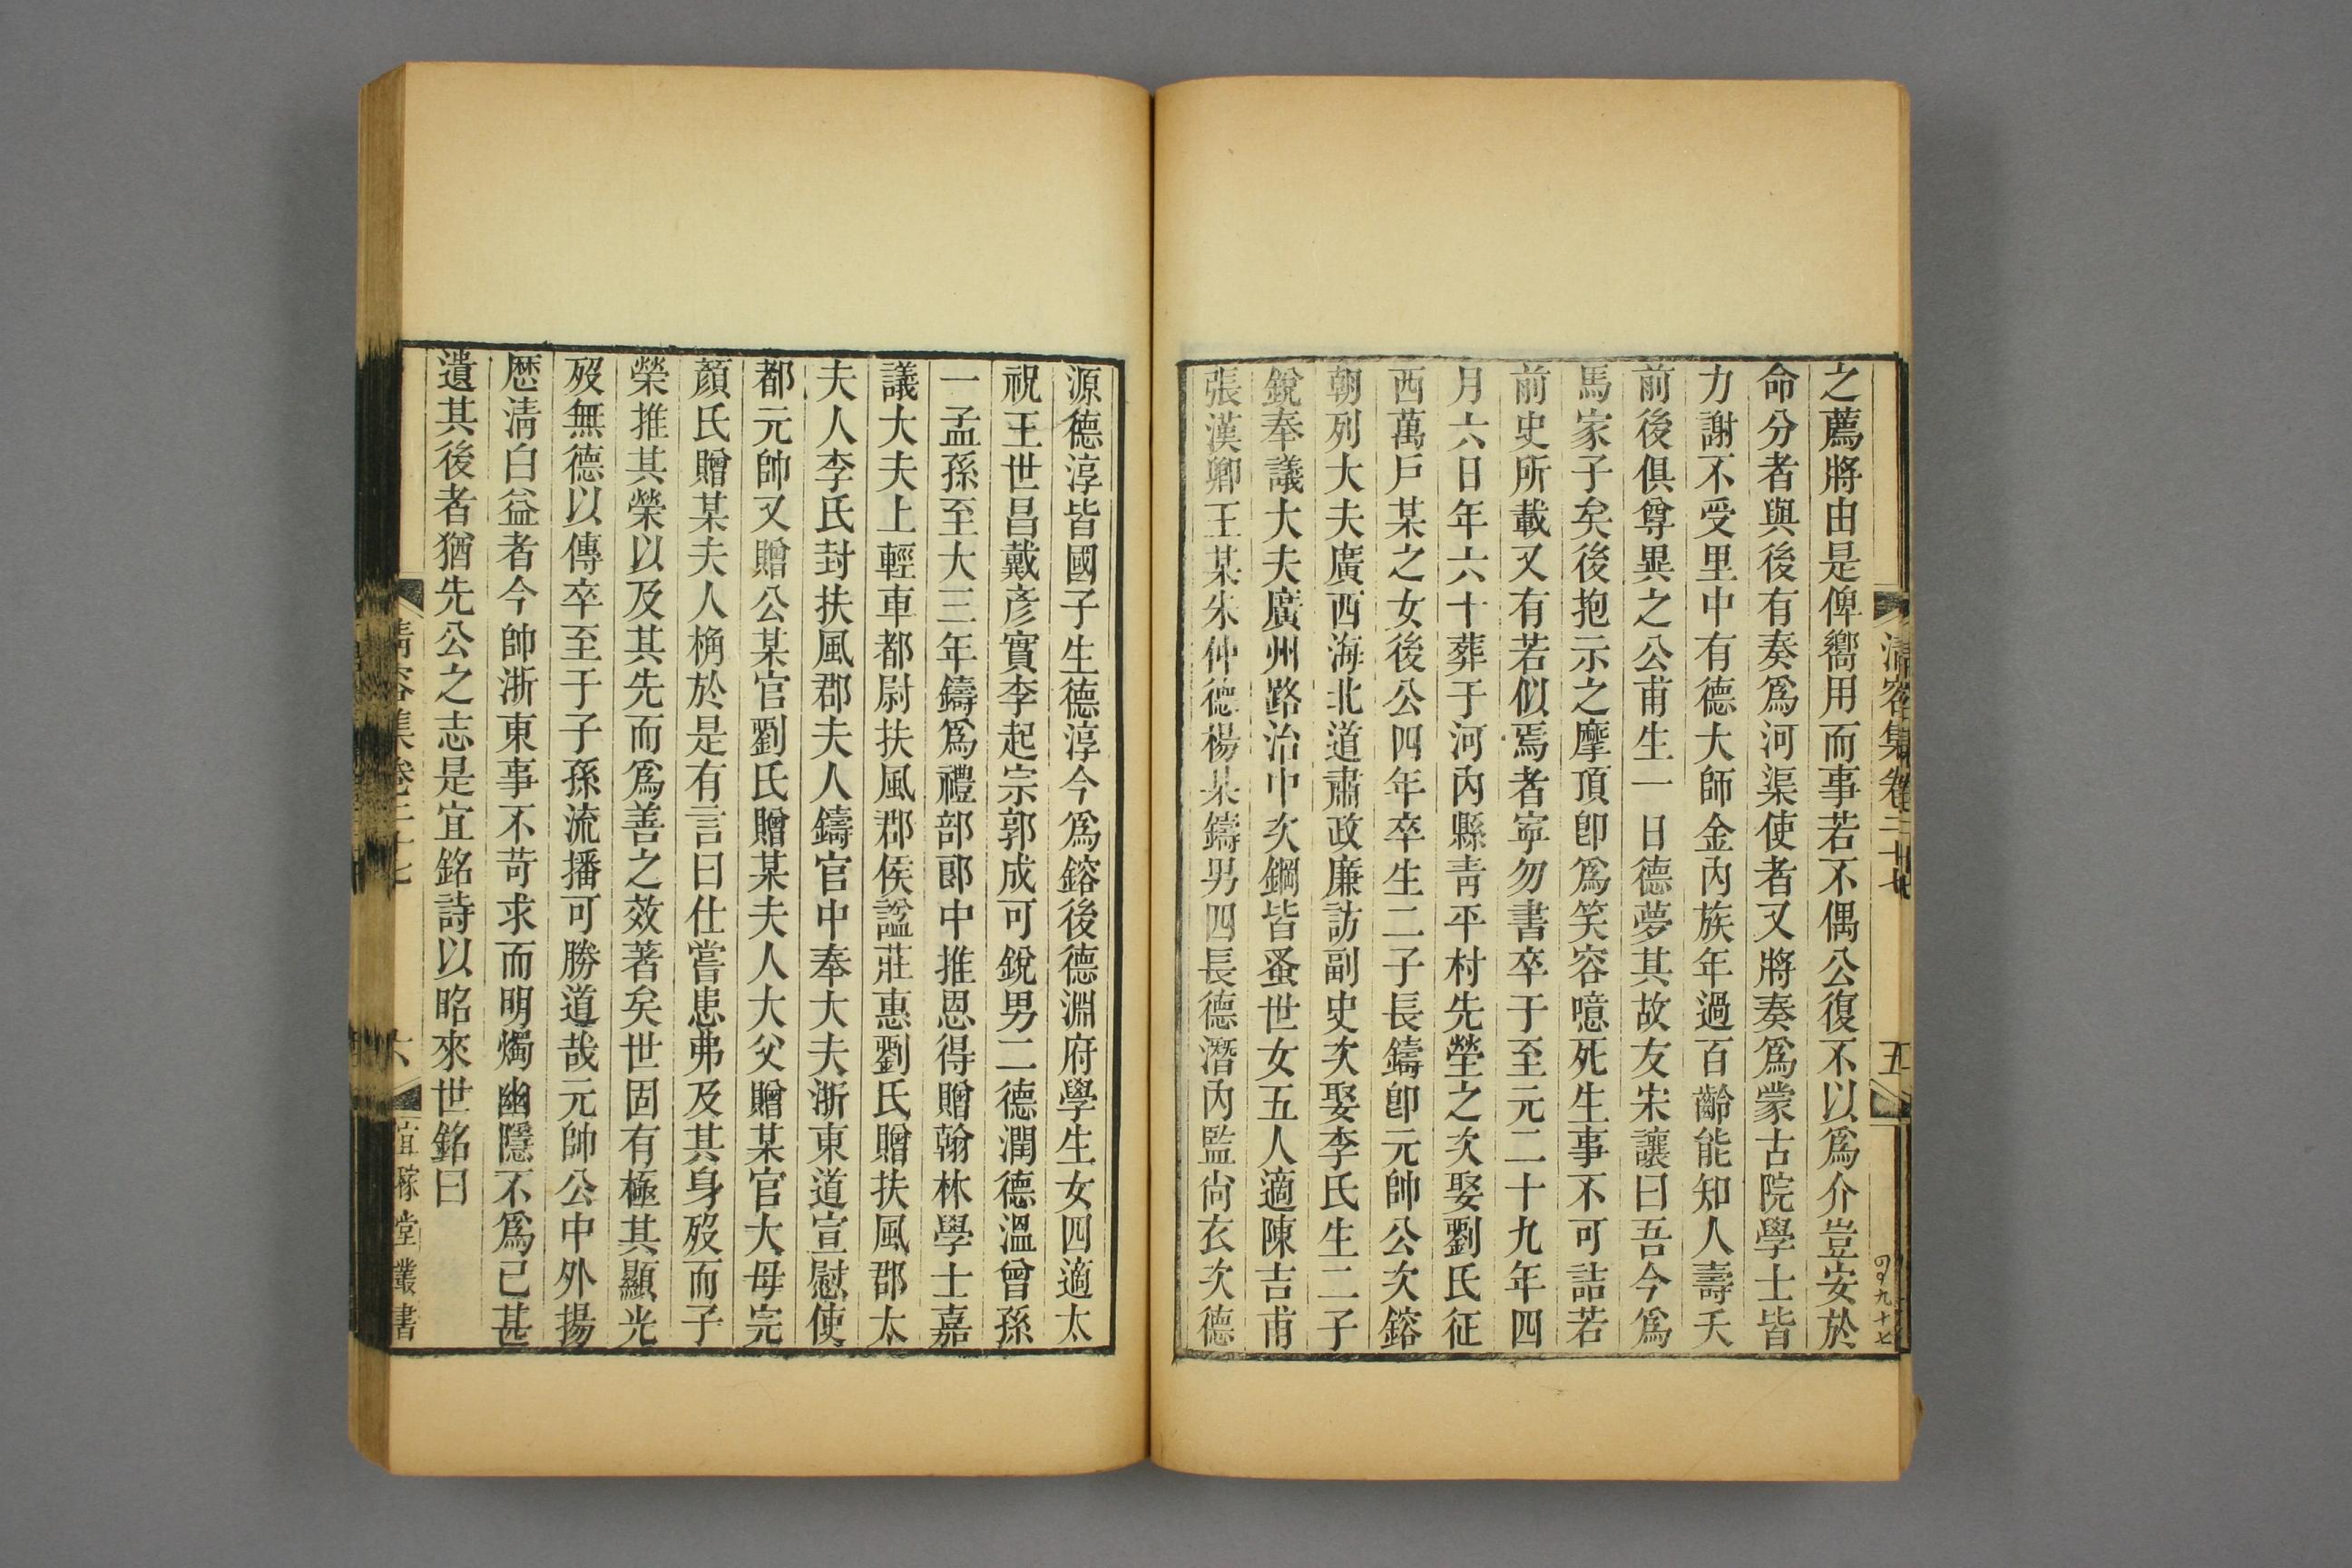 之薦將由是俾嚮用而事若不偶公復不以爲介豈安於
命分者與後有奏爲河渠使者又將奏爲蒙古院學士皆
力謝不受里中有德大師金內族年過百齡能知人壽夭
前後俱尊異之公甫生一日德夢其故友宋讓曰吾今爲
馬家子矣後抱示之摩頂卽爲笑容噫死生事不可詰若
前史所載又有若似焉者寧勿書卒于至元二十九年四
月六日年六十葬于河內縣靑平村先塋之次娶劉氏征
西萬戸某之女後公四年卒生二子長鑄卽元帥公次鎔
朝列大夫廣西海北道肅政廉訪副史次娶李氏生二子
銳奉議大夫廣州路治中次鋼皆蚤世女五人適陳吉甫
張漢卿王某朱仲德楊某鑄男四長德潛內監尙衣次德
清容集卷二十七
五
源德淳皆國子生德淳今爲鎔後德淵府學生女四適太
祝王世昌戴彥實李起宗郭成可銳男二德潤德溫曾孫
一孟孫至大三年鑄爲禮部郞中推恩得贈翰林學士嘉
議大夫上輕車都尉扶風郡侯諡莊惠劉氏贈扶風郡太
夫人李氏封扶風郡夫人鑄官中奉大夫浙東道宣慰使
都元帥又贈公某官劉氏贈某夫人大父贈某官大母完
顏氏贈某夫人桷於是有言曰仕嘗患弗及其身歿而子
榮推其榮以及其先而爲善之效著矣世固有極其顯光
歿無德以傳卒至于子孫流播可勝道哉元帥公中外揚
歷淸白益者今帥浙東事不苛求而明燭幽隱不爲已甚
遺其後者猶先公之志是宜銘詩以昭來世銘曰
清容集卷二十七
六
宜稼堂叢書